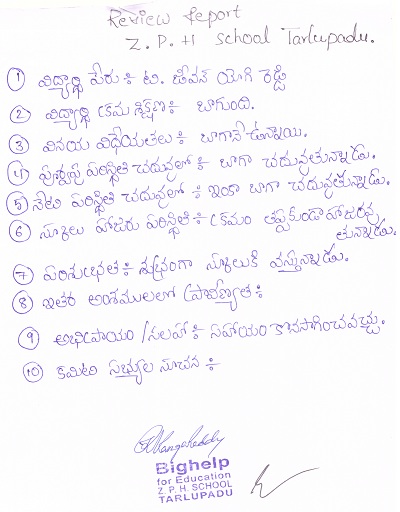 Review Report
Z. P. H School Tarlupadu.
① విద్యార్థి పేరు ÷ టి. జీవన్ యోగి రెడ్డి
② విద్యార్థి క్రమశిక్షణ ÷ బాగుంది.
③ వినయ విధేయతలు ÷ బాగానే ఉన్నాయి.
④ పూర్వపు పరిస్థితి చదువులో ÷ బాగా చదువుతున్నాడు.
⑤ నేటి పరిస్థితి చదువులో ÷ ఇంకా బాగా చదువుతున్నాడు.
⑥ స్కూలు హాజరు పరిస్థితి ÷ క్రమం తప్పకుండా హాజరవు
తున్నాడు.
⑦ పరిశుభ్రత ÷ శుభ్రంగా స్కూలుకి వస్తున్నాడు.
⑧ ఇతర అంశములలో ప్రావీణ్యత ÷
⑨ అభిప్రాయం / సలహా ÷ సహాయం కొనసాగించవచ్చు.
⑩ కమిటి సభ్యుల సూచన ÷
Bighelp
for Education
Z. P. H. SCHOOL
TARLUPADU